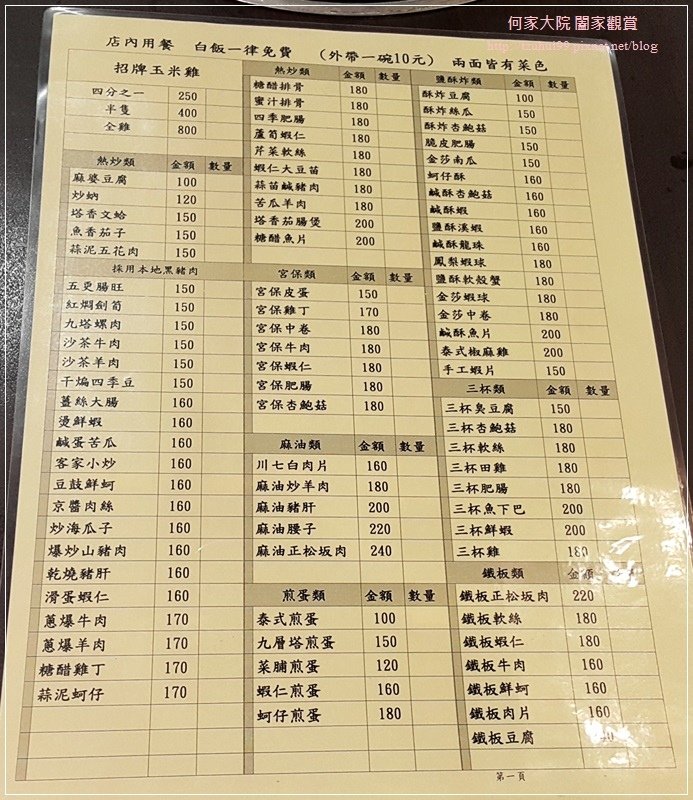 何家大院 闔家觀賞
http://tzuhui99.pixnet.net/blog
店內用餐 白飯一律免費 (外帶一碗10元) 兩面皆有菜色
招牌玉米雞
四分之一 250
半隻 400
全雞 800
熱炒類 金額 數量
麻婆豆腐 100
炒蚋 120
塔香文蛤 150
魚香茄子 150
蒜泥五花肉 150
採用本地黑豬肉
五更腸旺 150
紅燜劍筍 150
九塔螺肉 150
沙茶牛肉 150
沙茶羊肉 150
干煸四季豆 150
薑絲大腸 160
燙鮮蝦 160
鹹蛋苦瓜 160
客家小炒 160
豆鼓鮮蚵 160
京醬肉絲 160
炒海瓜子 160
爆炒山豬肉 160
乾燒豬肝 160
滑蛋蝦仁 160
蔥爆牛肉 170
蔥爆羊肉 170
糖醋雞丁 170
蒜泥蚵仔 170
熱炒類 金額 數量
糖醋排骨 180
蜜汁排骨 180
四季肥腸 180
蘆筍蝦仁 180
芹菜軟絲 180
蝦仁大豆苗 180
蒜苗鹹豬肉 180
苦瓜羊肉 180
塔香茄腸煲 200
糖醋魚片 200
宮保類 金額 數量
宮保皮蛋 150
宮保雞丁 170
宮保中卷 180
宮保牛肉 180
宮保蝦仁 180
宮保肥腸 180
宮保杏鮑菇 180
麻油類 金額 數量
川七白肉片 160
麻油炒羊肉 180
麻油豬肝 200
麻油腰子 220
麻油正松坂肉 240
煎蛋類 金額 數量
泰式煎蛋 100
九層塔煎蛋 150
菜脯煎蛋 120
蝦仁煎蛋 160
蚵仔煎蛋 180
鹽酥炸類 金額 數量
酥炸豆腐 100
酥炸絲瓜 150
酥炸杏鮑菇 150
脆皮肥腸 150
金莎南瓜 150
蚵仔酥 160
鹹酥杏鮑菇 160
鹹酥蝦 160
鹽酥溪蝦 160
鹹酥龍珠 160
鳳梨蝦球 180
鹽酥軟殼蟹 180
金莎蝦球 180
金莎中卷 180
鹹酥魚片 200
泰式椒麻雞 200
手工蝦片 150
三杯類 金額 數量
三杯臭豆腐 150
三杯杏鮑菇 180
三杯軟絲 180
三杯田雞 180
三杯肥腸 180
三杯魚下巴 200
三杯鮮蝦 200
三杯雞 180
鐵板類 金額 數量
鐵板正松坂肉 220
鐵板軟絲 180
鐵板蝦仁 180
鐵板牛肉 160
鐵板鮮蚵 160
鐵板肉片 160
鐵板豆腐
第一頁